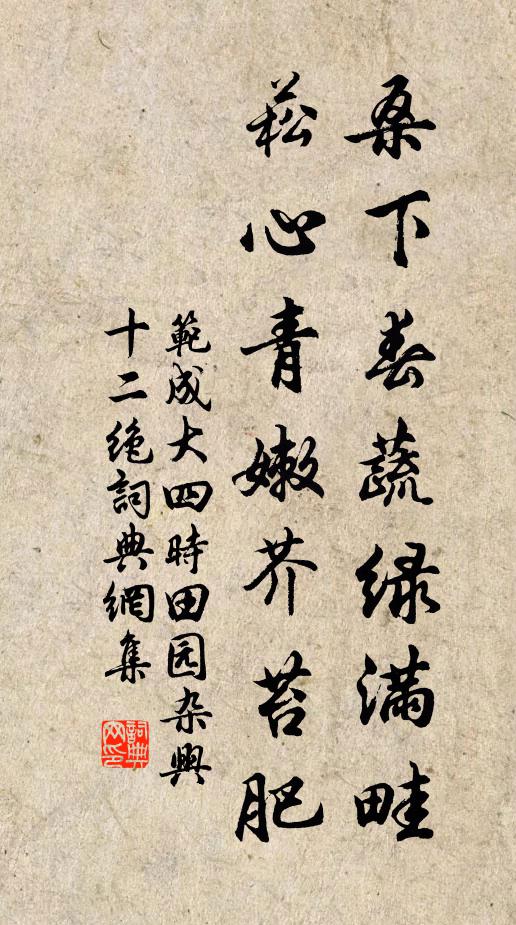 桑下春蔬綠滿畦
菘心青嫩芥苔肥
範成大四時田园杂興
十二绝詞典網集
詞典网印